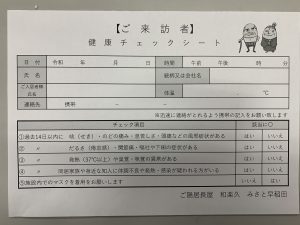 【ご来訪者】
健康チェックシート
日付 令和 年 月 日 時間 午前 午後 時 分
氏名 続柄又は会社名
ご入居者様氏名 体温 . ℃
連絡先 携帯 － －
※迅速に連絡がとれるよう携帯の記入をお願い致します
チェック項目 該当に○
①過去14日以内に 咳（せき）・のどの痛み・息苦しさ・頭痛などの風邪症状がある はい いいえ
② 〃 だるさ（倦怠感）・関節痛・嘔吐や下痢の症状がある はい いいえ
③ 〃 発熱（37℃以上）や味覚・嗅覚の異常がある はい いいえ
④ 〃 同居家族や身近な知人に体調不良や発熱・感染が疑われる方がいる はい いいえ
⑤施設内でのマスクを着用をお願いします はい いいえ
ご隠居長屋 和楽久 みさと早稲田